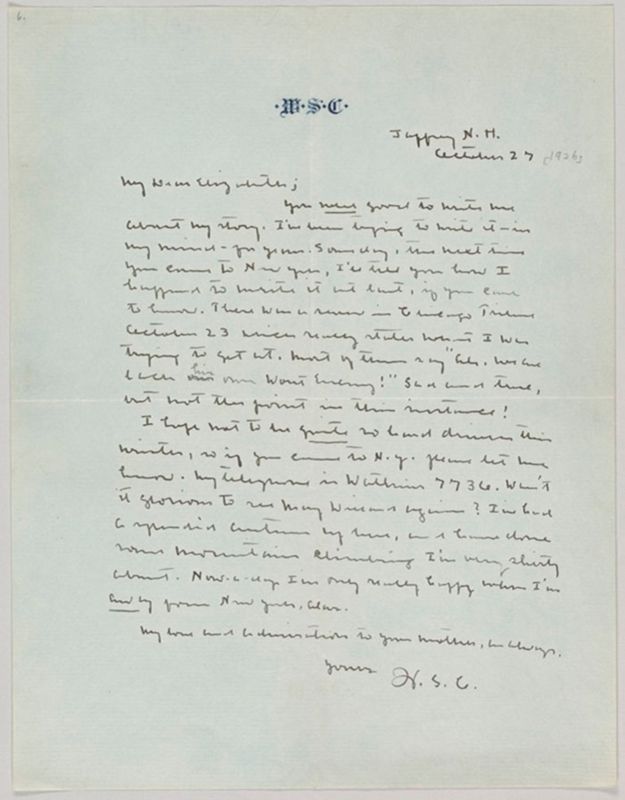 6.
·W·S·C·
Jaffrey N. H.
October 27 [1926]
My Dear Elizabeth;
You were good to write me
about my story. I've been trying to write it - in
my mind - for years. Some day, the next time
you come to New York, I'll tell you how I
happened to write it at last, if you care
to know. There was a review in Chicago Tribune
October 23 which really states what I was
trying to get at. Most of them say "Ah. We are
each his own Worst Enemy!" Sad and true,
but not the point in this instance!
I hope not to be quite so hard driven this
winter, so if you come to N. Y. please let me
know. My telephone is Watkins 7736. Wasn't
it glorious to see May Willard again? I've had
a splendid autumn up here, and have done
some mountain climbing I'm very shirty
about. Now-a-days I'm only really happy when I'm
away from New York, alas.
My love and admiration to your mother, as always.
Yours
W. S. C.